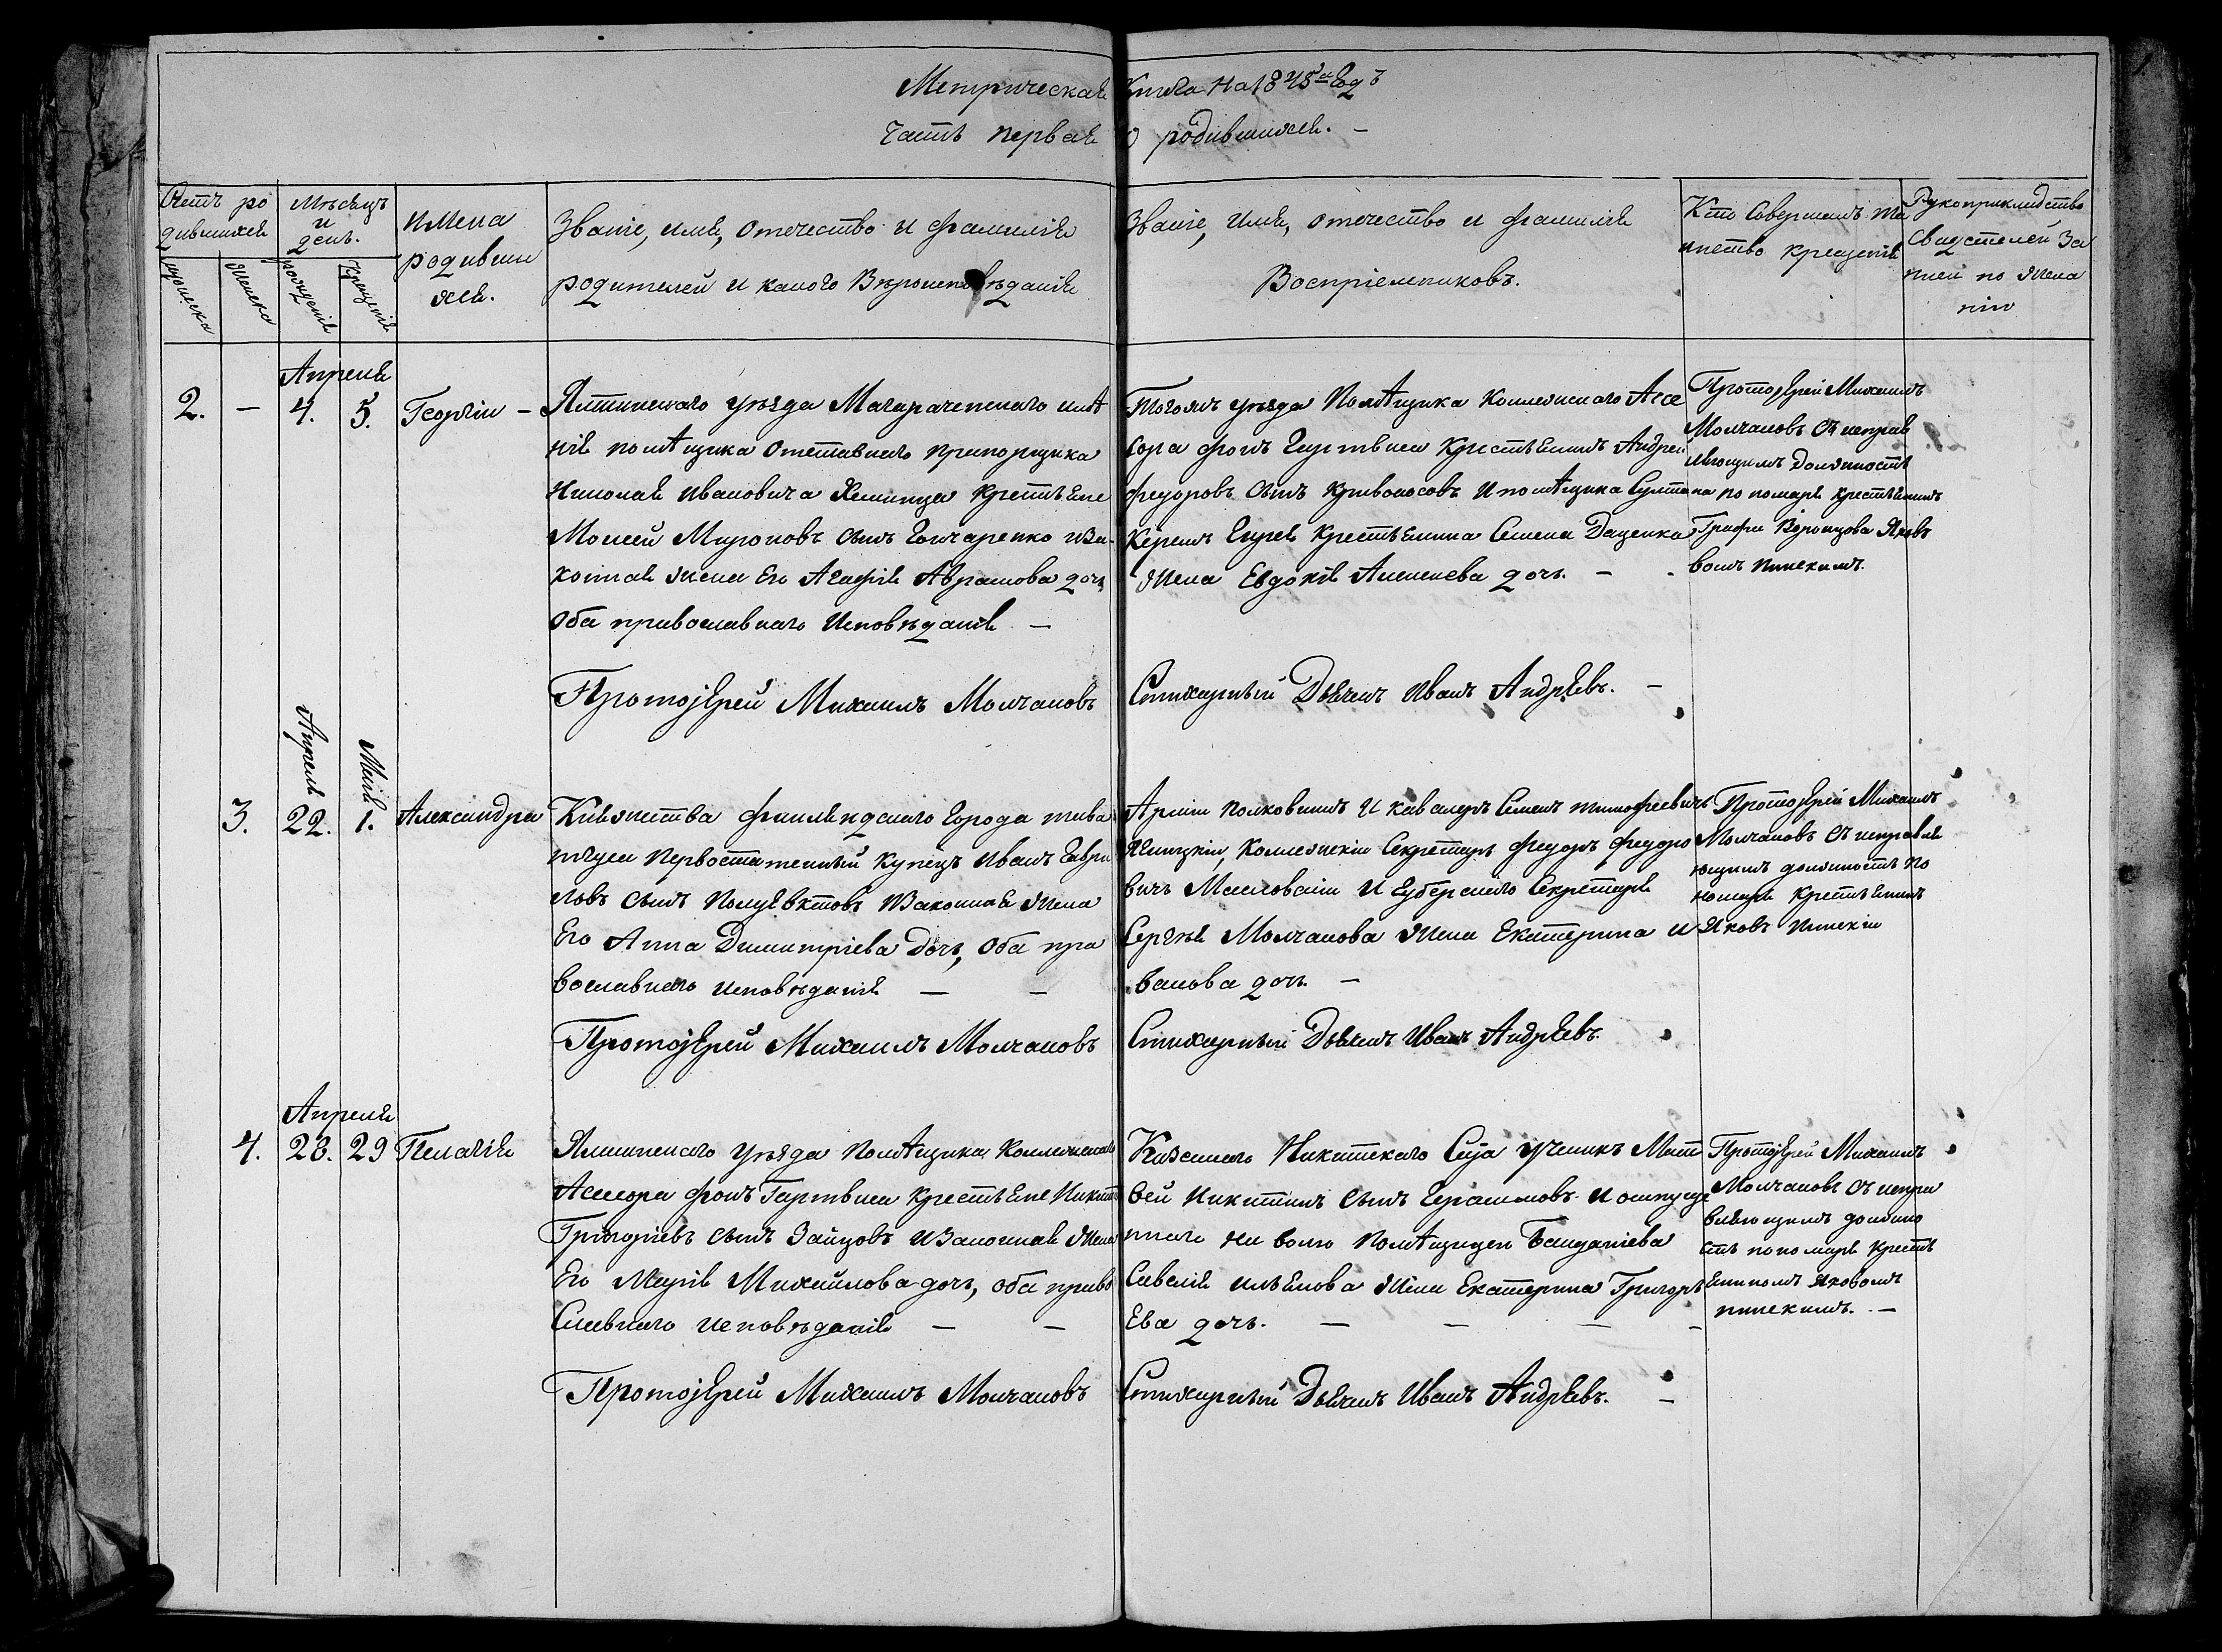 Метрическая Книга на 1845й Годъ
Часть первая О родившихся. —
Счетъ ро
дившихся
мужеска
женска
Мѣсяцъ
и
день.
рожденія
крещенія
Имена
родивши
хся.
Званіе, имя, отечество и фамилія
родителей и какого Вѣроисповѣданія
Званіе, имя, отечество и фамилія
Воспріемниковъ.
Кто Совершалъ та
инство крещенія
Рукоприкладство
Свидетелей За
писи по жела
нію
Апреля
2. — 4. 5. Георгій —
Ялтинскаго уѣзда Магарачскаго имѣ
нія помѣщика отставнаго прапорщика
Николая Ивановича крестьяне
Моисей Мироновъ сынъ Гончаренко и за-
конная жена Его Агафія Аврамова дочь
Оба православнаго Исповѣданія —
Тогожъ уѣзда Помѣщика Коллежскаго Ассе
сора фонъ Гартвиса Крестьянинъ Андрей
федоровъ сынъ Кривоносовъ и помѣщика Султана
Керимъ Гирея Крестьянина Семена Даценка
жена Евдокія Алексеева дочь. —
Протоjерей Михаилъ
Молчановъ съ исправ
ляющимъ должность
по номаря крестьяниномъ
Графа Воронцова Яков
омъ
Протоjерей Михаилъ Молчановъ
Стихарный Дьячекъ Иванъ Андреевъ. —
Апреля
Маія
3. 22. 1. Александра
Княжества финляндскаго Города
Первостатейный купецъ Иванъ Гаври
ловъ сынъ Полуектовъ и Законная жена
Его Анна Димитріева дочь, Оба пра
вославнаго исповѣданія — —
Арміи полковникъ и кавалеръ Семенъ тимофеевичъ
Коллежскій Секретарь федоръ федоро
вичъ и губернскаго Секретаря
Сергѣя Молчанова жена Екатерина И
ванова дочь. —
Протоjерей Михаилъ
Молчановъ съ исправля
ющимъ должность по
номаря Крестьянинъ
Яковъ
Протоjерей Михаилъ Молчановъ
Стихарный Дьячекъ Иванъ Андреевъ.
Апреля
4. 28. 29 Пелагія
Ялтинскаго уѣзда Помѣщика Коллежскаго
Ассесора фонъ Гартвиса крестьяне Никита
Григоріевъ сынъ Зайцовъ и Законная жена
Его Марія Михайлова дочь, оба право
Славнаго исповѣданія — —
Казеннаго Никитскаго Сада ученикъ Мат
вей Никитинъ сынъ Герасимовъ и отпуще
ннаго на волю Помѣщицей
Савелія жена Екатерина Григорь
Ева дочь. — — — —
Протоjерей Михаилъ
Молчановъ съ испра
вляющимъ должно
сть пономаря кресть
яниномъ Яковомъ
Протоjерей Михаилъ Молчановъ
Стихарный Дьячекъ Иванъ Андреевъ. —